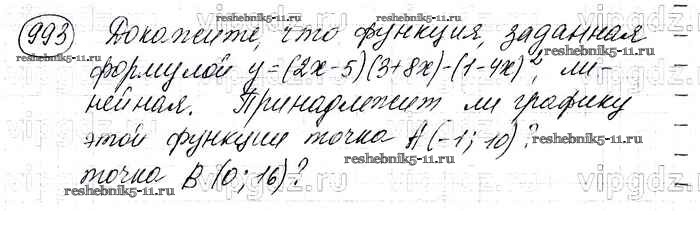 993 Докажите, что функция, заданная
формулой y=(2x-5)(3+8x)-(1-4x)², ли-
нейная. Принадлежит ли графику
этой функции точка A(-1; 10)?
точка B(0; 16)?
reshebnik5-11.ru
reshebnik5-11.ru
reshebnik5-11.ru
reshebnik5-11.ru
reshebnik5-11.ru
reshebnik5-11.ru
vipgdz.com